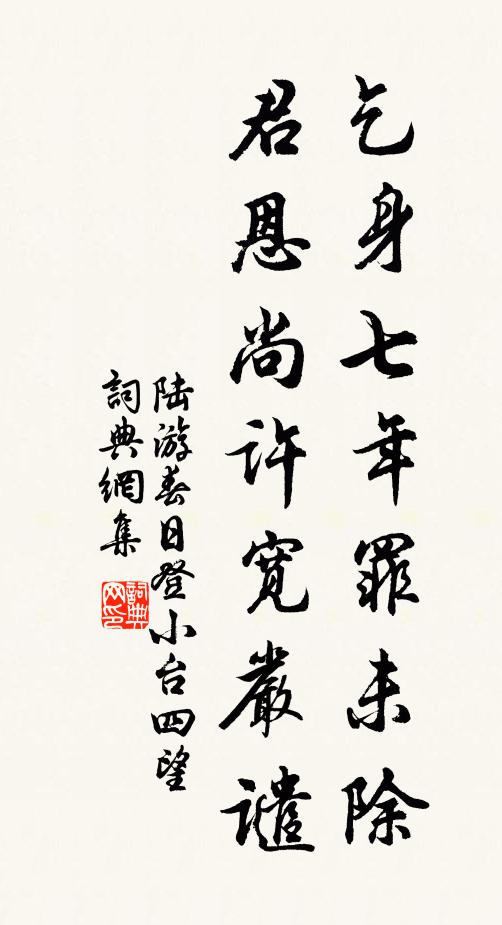 乞身七年罪未除
君恩尚許寬嚴譴
陆游春日登小台四望
詞典網集
詞典网印